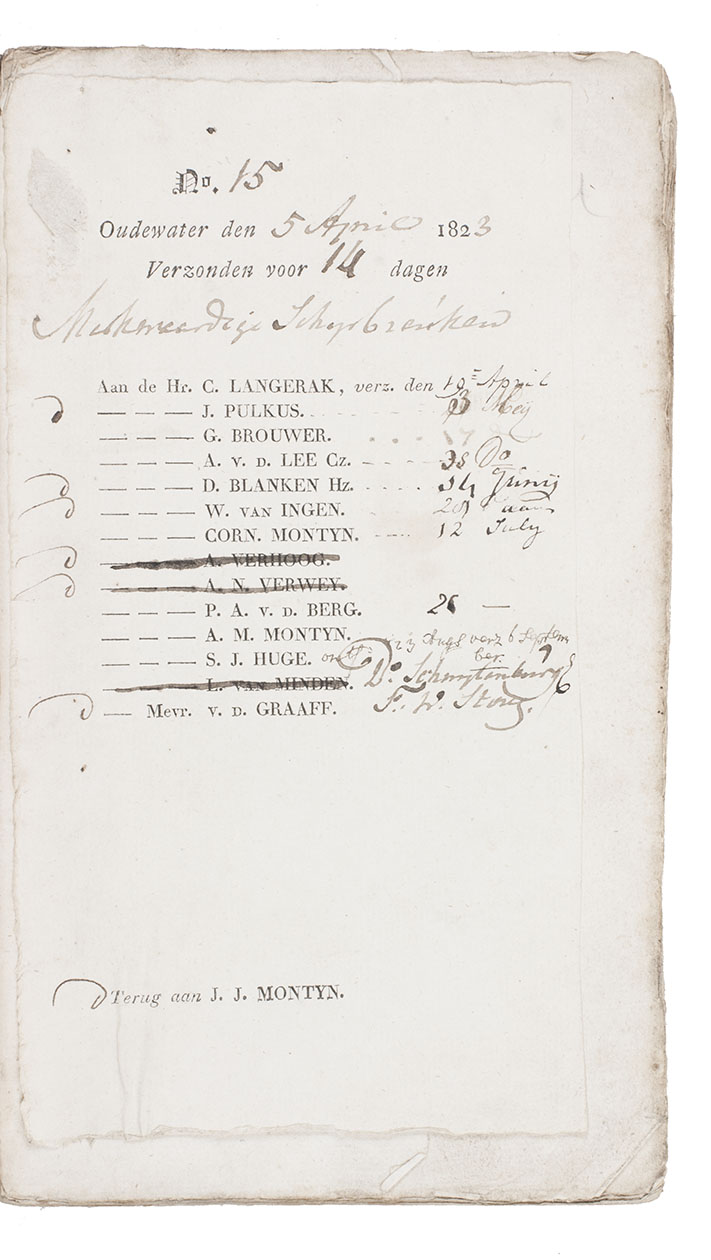 No. 15
Oudewater den 5 April 1823
Verzonden voor 14 dagen
Merkwaardige Schipbreuken
Aan de Hr. C. LANGERAK, verz. den 19 April
— — — J. PULKUS. 3 Meij
— — — G. BROUWER. 17
— — — A. v. d. LEE Cz. Do
— — — D. BLANKEN Hz. 14 Junij
— — — W. VAN INGEN. 28
— — — CORN. MONTYN. 12 July
— — — A. VERHOOG.
— — — A. N. VERWEY.
— — — P. A. v. d. BERG. 26 —
— — — A. M. MONTYN. 23 Augs verz 6 Septem
— — — S. J. HUGE. ontf. ber.
— — — L. VAN MINDEN. Ds.
— Mevr. v. d. GRAAFF. F. W.
Terug aan J. J. MONTYN.